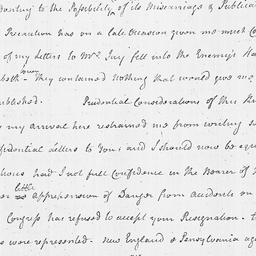 to the Possibility of its Miscarriage &
Precaution has on a late Occasion given me much
of my Letters to Mrs. Jay fell into the Enemy's
both now They contained Nothing that would give me
Prudential Considerations of this
my arrival here restrained me from writing
Letters to You; and I should now be
had I not full Confidence in the Bearer of
little no apprehension of Danger from accidents on
Congress has refused to accept your Resignation.
were represented. New England & Pensylvania